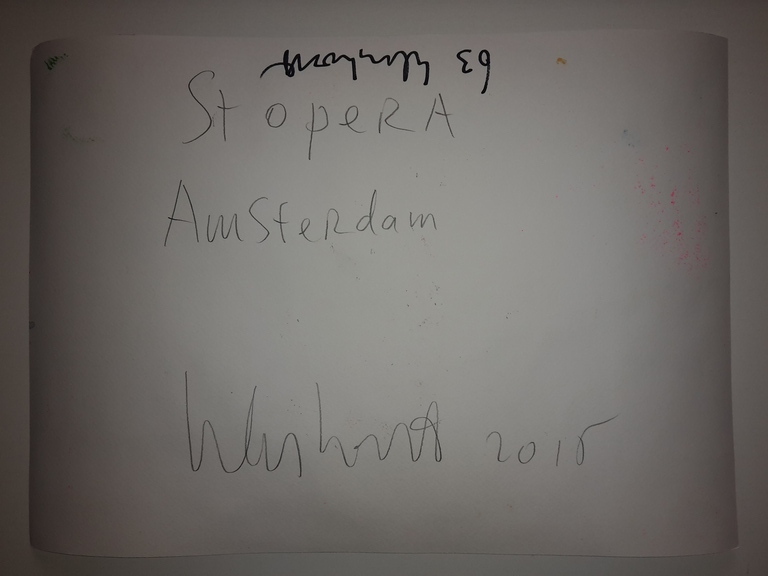 63
Stopera
Amsterdam
2015